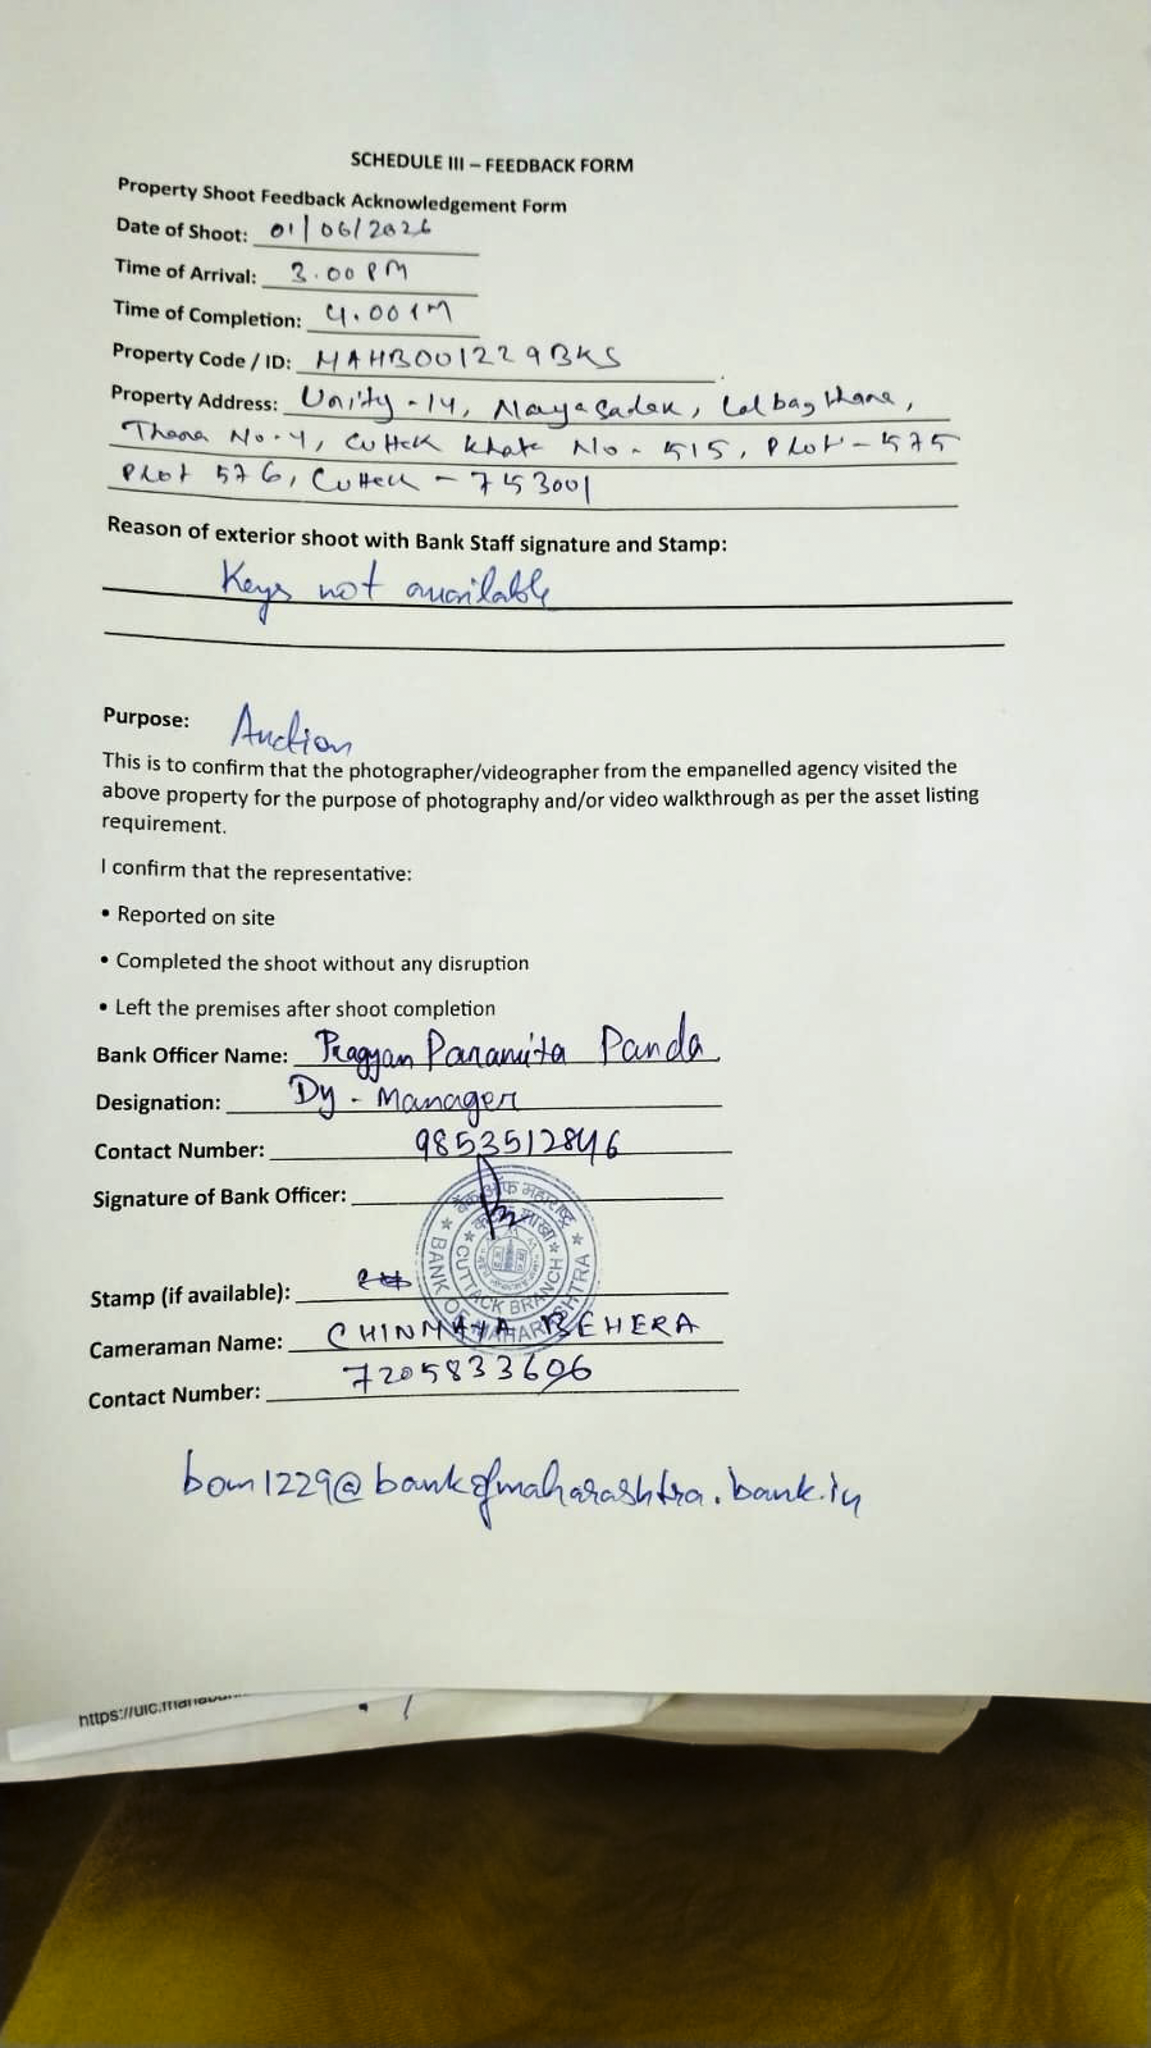 SCHEDULE III – FEEDBACK FORM
Property Shoot Feedback Acknowledgement Form
Date of Shoot: 01/06/2026
Time of Arrival: 3.00 PM
Time of Completion: 4.00 PM
Property Code / ID: MAHB001229BKS
Property Address: Unity - 14, Nayasadak, Lalbag thana,
Thana No-4, Cuttack khata No - 515, Plot - 575
Plot 576, Cuttack - 753001
Reason of exterior shoot with Bank Staff signature and Stamp:
Keys not available
Purpose: Auction
This is to confirm that the photographer/videographer from the empanelled agency visited the
above property for the purpose of photography and/or video walkthrough as per the asset listing
requirement.
I confirm that the representative:
• Reported on site
• Completed the shoot without any disruption
• Left the premises after shoot completion
Bank Officer Name: Pragyan Paramita Panda
Designation: Dy - Manager
Contact Number: 9853512846
Signature of Bank Officer:
बैंक ऑफ महाराष्ट्र
कटक शाखा
CUTTACK BRANCH
BANK OF MAHARASHTRA
Stamp (if available):
Cameraman Name: CHINMAYA BEHERA
Contact Number: 7205833606
bom1229@bankofmaharashtra.bank.in